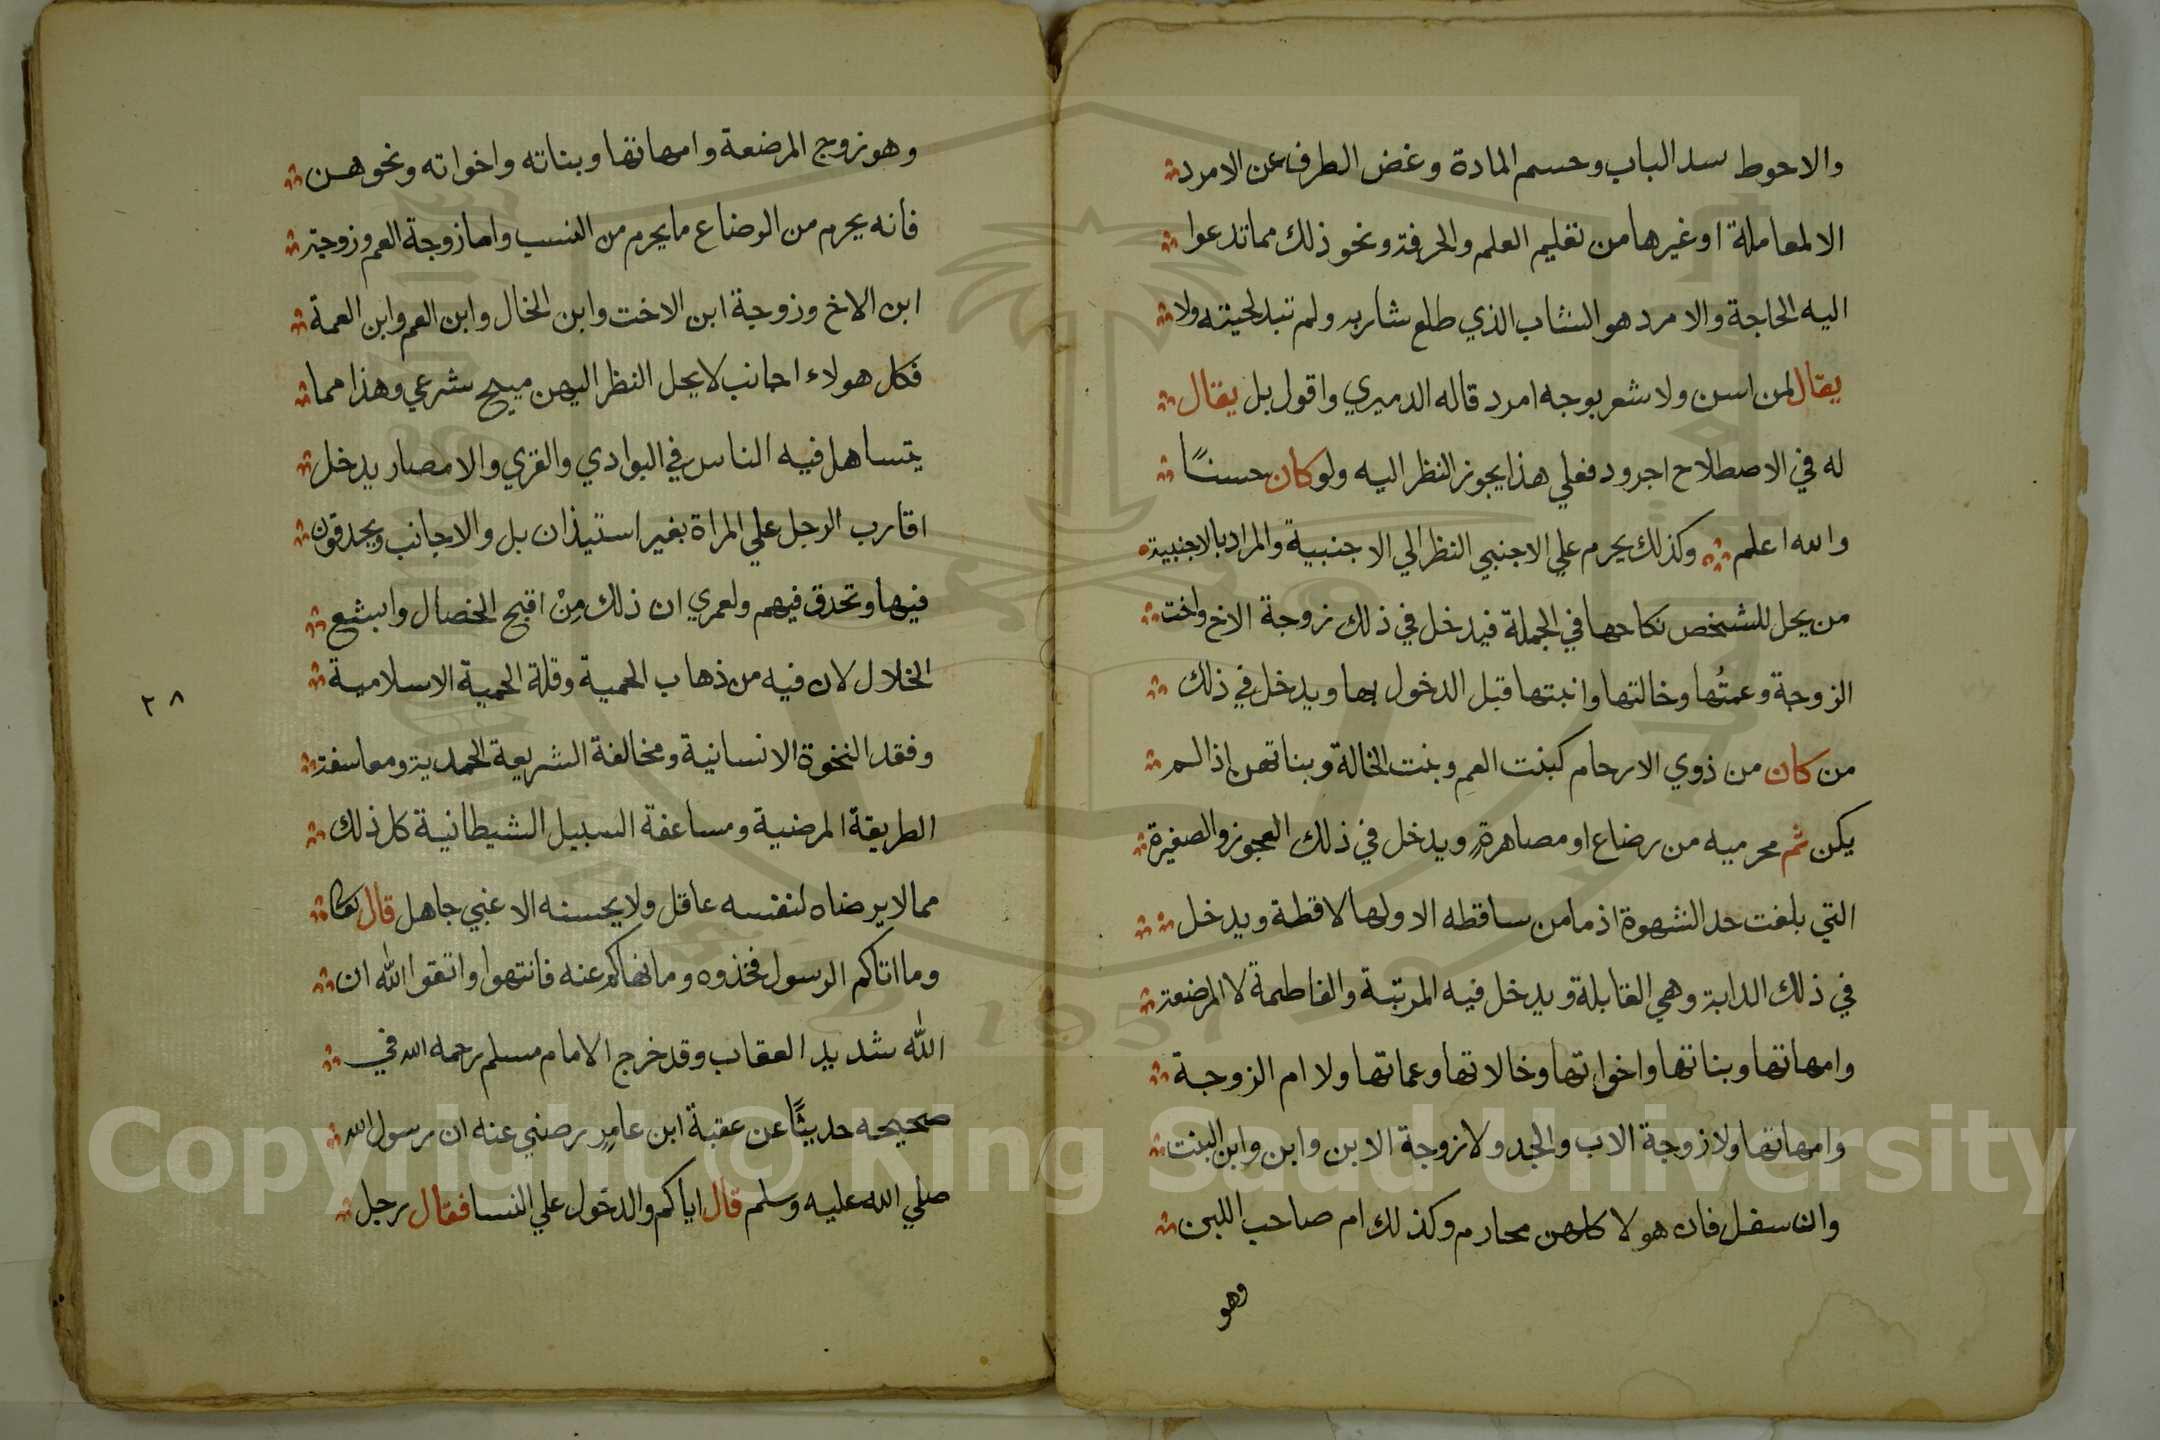 والاحوط سد الباب وحسم المادة وغض الطرف عن الامرد
الا لمعاملة او غيرها من تعليم العلم والحرفة ونحو ذلك مما تدعوا
اليه الحاجة والامرد هو الشاب الذي طلع شاربه ولم تبد لحيته ولا
يقال لمن اسن ولا شعر بوجه امرد قاله الدميري واقول بل يقال
له في الاصطلاح اجرود فعلي هذا يجوز النظر اليه ولو كان حسنًا
والله اعلم وكذلك يحرم علي الاجنبي النظر الي الاجنبية والمراد بالاجنبية
من يحل للشخص نكاحها في الجملة فيدخل في ذلك زوجة الاخ واخت
الزوجة وعمتُها وخالتها وابنتها قبل الدخول بها ويدخل في ذلك
من كان من ذوي الارحام كبنت العم وبنت الخالة وبناتهن اذ لم
يكن ثم محرميه من رضاع او مصاهرةٍ ويدخل في ذلك العجوز والصغيرة
التي بلغت حد الشهوة اذ ما من ساقطه الا ولها لاقطة ويدخل
في ذلك الداية وهي القابلة ويدخل فيه المربتة والفاطمة لا المرضعة
وامهاتها وبناتها واخواتها وخالاتها وعماتها ولا ام الزوجة
وامهاتها ولا زوجة الاب والجد ولا زوجة الابن وابن وابن البنت
وان سفل فان هولا كلهن محارم وكذلك ام صاحب اللبن
وهو
وهو زوج المرضعة وامهاتها وبناته واخواته ونحوهن
فانه يحرم من الرضاع ما يحرم من النسب واما زوجة العم وزوجة
ابن الاخ وزوجة ابن الاخت وابن الخال وابن العم وابن العمة
فكل هولاء اجانب لا يحل النظر اليهن ميح شرعي وهذا مما
يتساهل فيه الناس في البوادي والقري والامصار يدخل
اقارب الرجل علي المراة بغير استيذان بل والاجانب ويحدقون
فيها وتحدق فيهم ولعمري ان ذلك مِنْ اقبح الخصال وابشع
الخلال لان فيه من ذهاب الحمية وقلة الحمية الاسلامية
وفقد النخوة الانسانية ومخالفة الشريعة المحمدية ومعاسفة
الطريقة المرضية ومساعفة السبيل الشيطانية كل ذلك
مما لا يرضاه لنفسه عاقل ولا يحسنه الا غبي جاهل قال تعالى
وما اتاكم الرسول فخذوه وما نهاكم عنه فانتهوا واتقوا اللّٰه ان
اللّٰه شديد العقاب وقد خرج الامام مسلم رحمه الله في
صحيحه حديثًا عن عقبة ابن عامرٍ رضي عنه ان رسول الله
صلي الله عليه وسلم قال اياكم والدخول علي النسا فقال رجل
٣٨
Copyright © King Saud University
1957